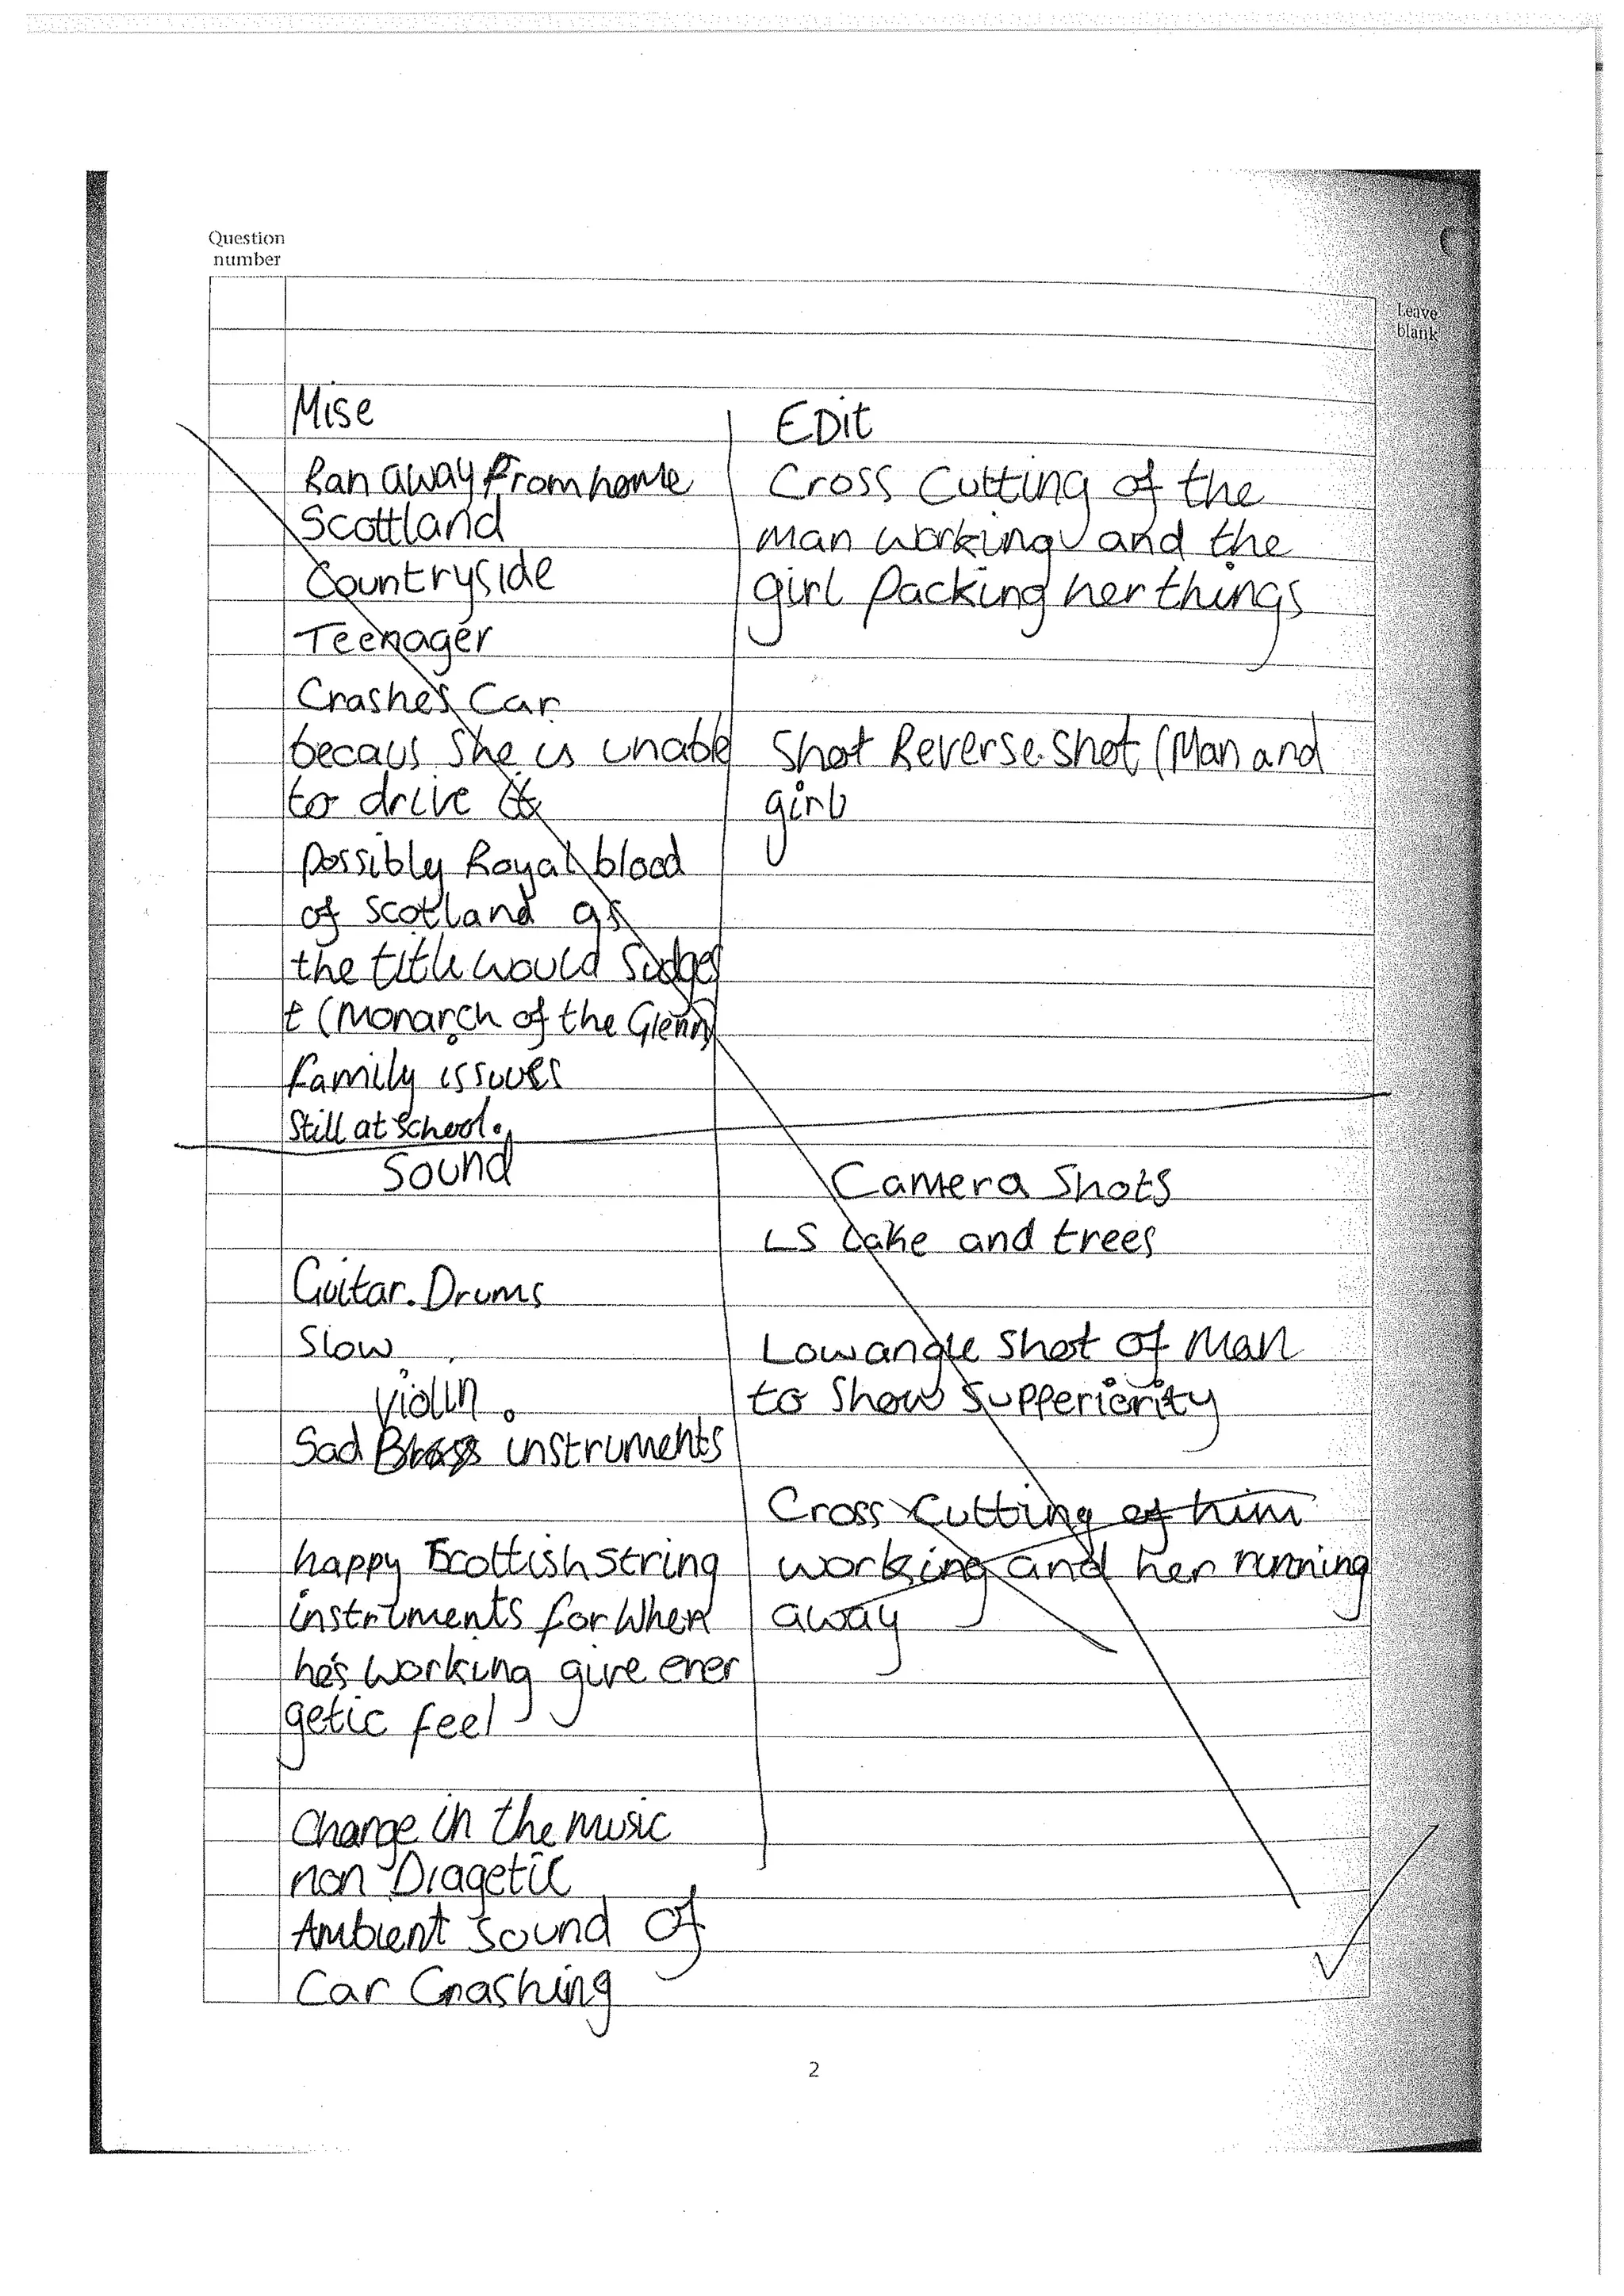 Question
number
Leave
blank
Mise
Ran away from home
Scottland
Countryside
Teenager
Crashes Car
becaus she is unable
to drive it
possibly Royal blood
of scotland as
the title would sudges
t (Monarch of the Glenn)
family issues
Still at school.
EDit
Cross Cutting of the
man working and the
girl packing her things
Shot Reverse shot (Man and
girl
Sound
Guitar. Drums
Slow
violin.
Sad Brass instruments
happy Scottish string
instruments for when
he's working give ener
getic feel
Change in the music
non Diagetic
Ambient sound of
Car Crashing
Camera Shots
LS Lake and trees
Low angle shot of man
to show supperirity
Cross Cutting of him
working and her running
away
2